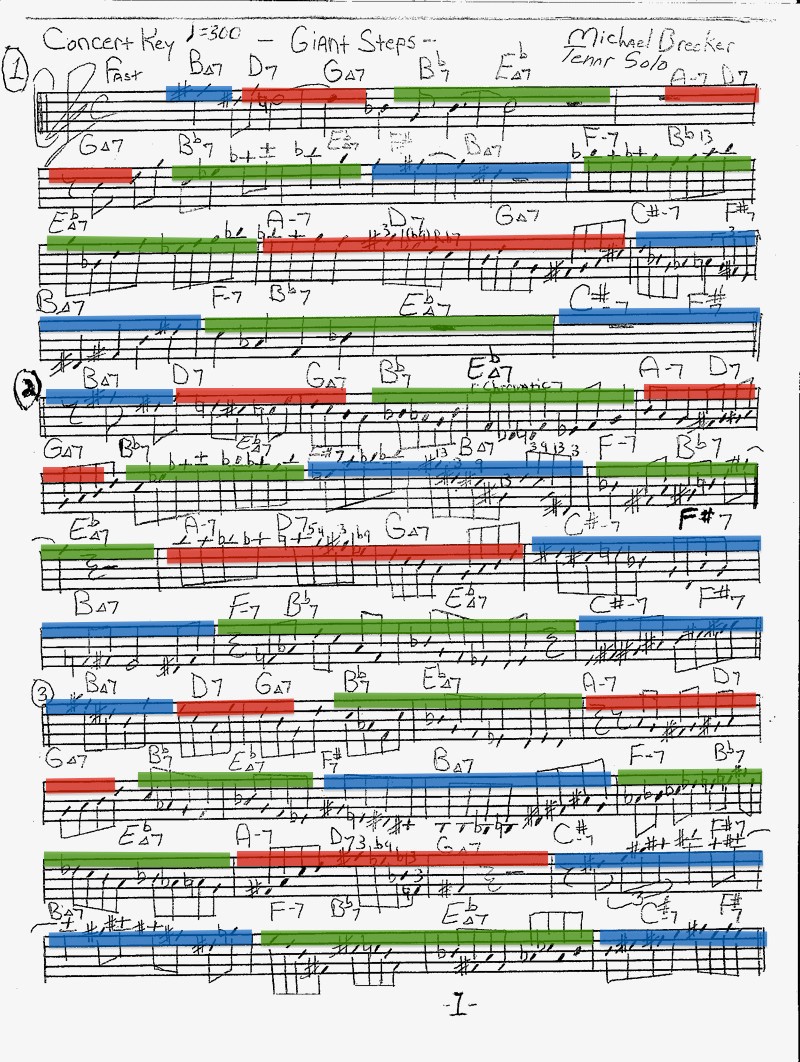 Concert Key ♩=300 — Giant Steps — Michael Brecker
Tenor Solo
1 Fast B△7 D7 G△7 B♭7 E♭△7 A-7 D7
G△7 B♭7 E♭△7 F# B△7 F-7 B♭13
E♭△7 A-7 D7 G△7 C#-7 F#7
B△7 F-7 B♭7 E♭△7 C#-7 F#7
2 B△7 D7 G△7 B♭7 E♭△7 A-7 D7
Chromatic
G△7 B♭7 E♭△7 F#7 B△7 F-7 B♭7
E♭△7 A-7 D7 G△7 C#-7 F#7
B△7 F-7 B♭7 E♭△7 C#-7 F#7
3 B△7 D7 G△7 B♭7 E♭△7 A-7 D7
G△7 B♭7 E♭△7 F#7 B△7 F-7 B♭7
E♭△7 A-7 D7 G△7 C#-7 F#7
B△7 F-7 B♭7 E♭△7 C#-7 F#7
-1-